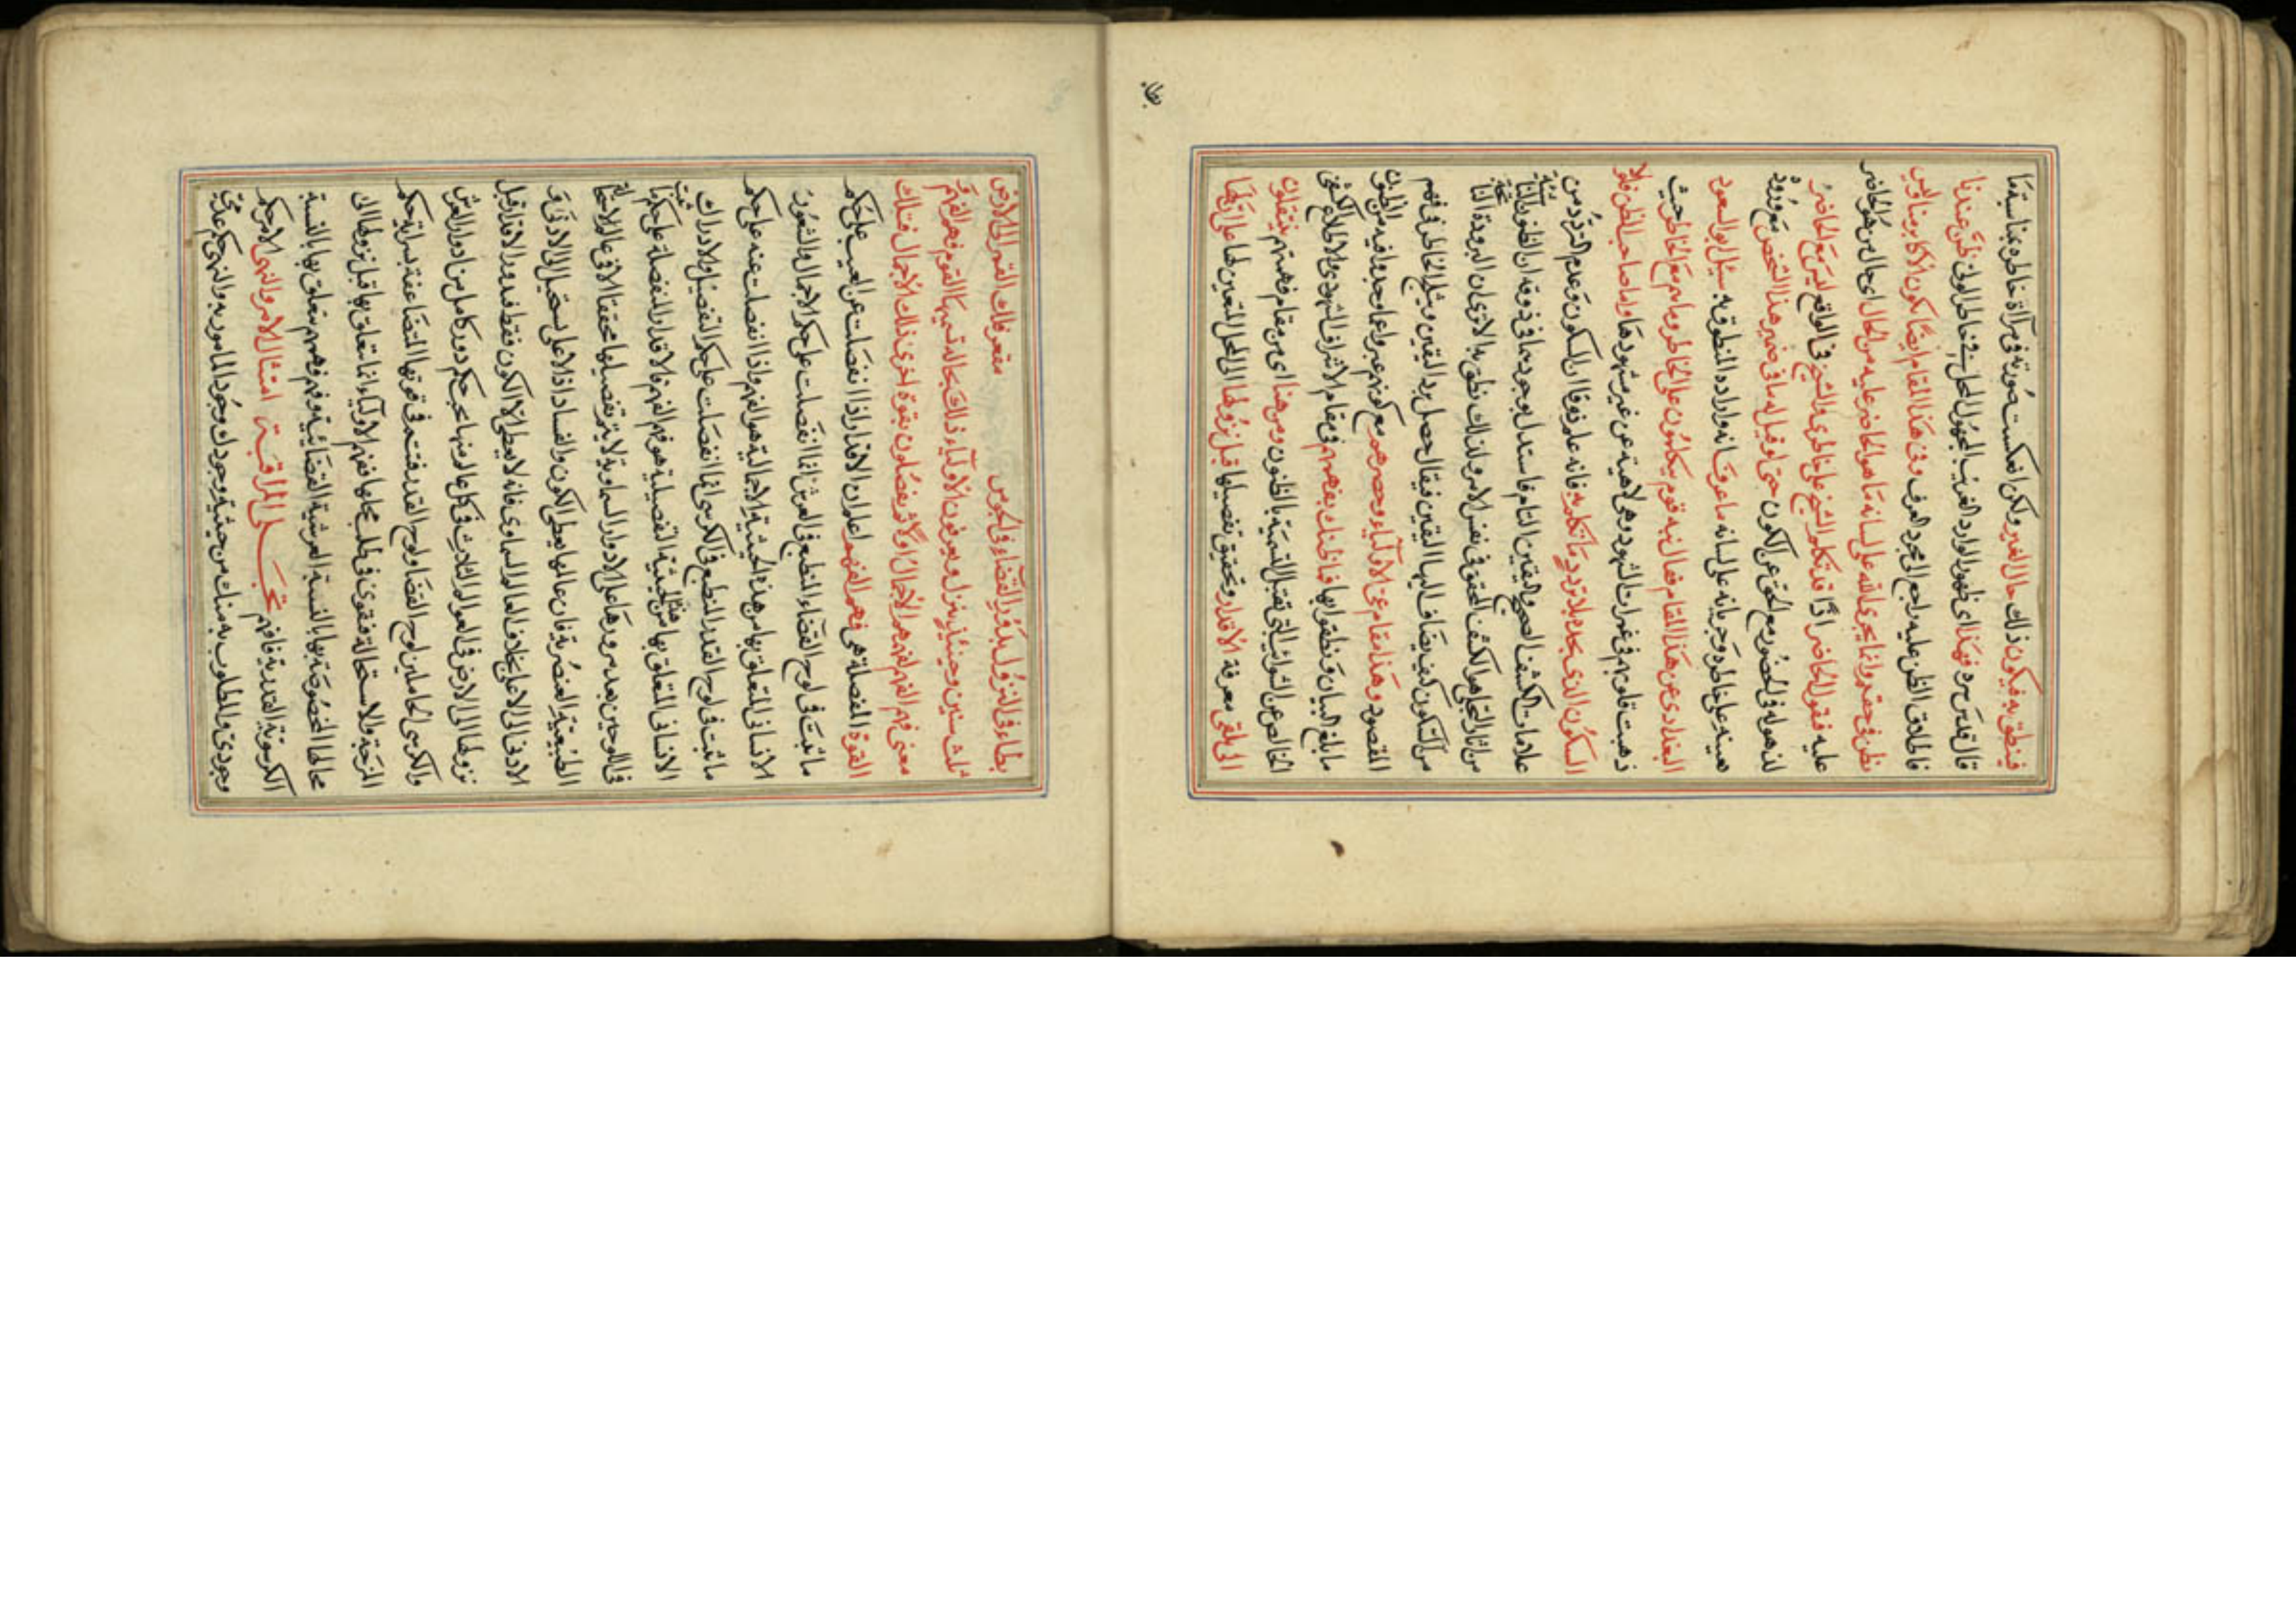 فينطق به فيكون ذلك حال الغير ولكن انعكست صورته في مرآة خاطره بمناسبة ما
قال قدس سره فهذا اى ظهور الوارد الغريب المجهول المحل في خاطر الولى ظن عندنا
فاطلاق الظن عليه راجع الى مجرد العرف وفى هذا المقام ايضا يكون الاكابر منا وليس
بظن في حقهم وانما يجرى الله على لسانه ما هو الحاضر عليه من الحال اى حال من هو الحاضر
عليه فيقول الحاضر اذا قد تكلم الشيخ على خاطرى والشيخ في الواقع ليس مع الحاضر
لذهوله في الحضور مع الحق عن الكون حتى لو قيل له ما في ضمير هذا الشخص
هيبته على خاطره وجريانه على لسانه ما عرف انه اراده المنطوق به سئل ابو السعود
البغدادى عن هذا المقام فقال لله قوم يتكلمون على الخاطر وما هم مع الخاطر حيث
ذهبت قلوبهم في غمرات الشهود وهى لاهية عن غير مشهودها واما صاحب الظن فلولا
السكون الذى يجده بلا تردد ما تكلم به فانه علم ذوقا ان السكون وعدم التردد من
علامات الكشف الصحيح واليقين التام فاستدل بوجودهما في ذوقه ان الظنون
من آثار التجلى هو الكشف المحقق في نفس الامر ولذلك نطق به الا ترى ان البرودة
من السكون كيف يضاف اليها اليقين فيقال حصل برد اليقين ومثل الخاطر في فهم
المقصود وهذا مقام عن الاولياء وحصرهم مع كونهم عبروا عما وجدوا فيه من الظنون
ما بلغ البيان ونطقوا بها فما ظنك بفهمهم في مقام الاشراف الشهودى والاطلاع الكشفى
الخالص عن الشوائب التى تقبل التسمية بالظنون ومن هنا اى من مقام فهمهم ينتقلون
الى تلقى معرفة الاقدار وتحقيق تفصيلها قبل نزولها الى المحل المتعين لها على ان لها
بطاء في النزول يدور القضاء في الجو من مقعر فلك القمر الى الارض
ثلث سنين وحينئذ ينزل ويعرفون الاولياء ذلك بحالة تسميها القوم فهم الفهم
معنى فهم الفهم هو الاجمال اولا ثم يفصلون بقوة اخرى ذلك الاجمال فتلك
القوة المفصلة هى فهم الفهم اعلم ان الاقدار اذا انفصلت عن الغيب على حكم
ما ثبت في لوح القضاء المنطبع في العرش انما انفصلت على حكم الاجمال والشعور
الانسانى المتعلق بها من هذه الحيثية الاجمالية هو الفهم واذا انفصلت عنه على حكم
ما ثبت في لوح القدر المنطبع في الكرسى انما انفصلت على حكم التفصيل والادراك
الانسانى المتعلق بها من الحيثية التفصيلية هو فهم الفهم فالاقدار المفصلة على حكم
في اللوحين بعد مرورها على الادوار السماوية لا يتم تفصيلها محققا الا في عالم الاستحالة
الطبيعية العنصرية فان عالمها يعطى الكون والفساد اذ الاعلى يستحيل الى الادنى و
الادنى الى الاعلى بخلاف العالم السماوى فانه لا يعطى الا الكون فقط فدور الاقدار قبل
نزولها الى الارض في العوالم الثلاث في كل عالم منها بحكم دور كامل من ادوار العرش
والكرسى الحاملين لوح القضاء ولوح القدر فتتم في قوتها المتضاعفة بسراية حكم
المزجة والاستحالة فتقوى في طلب محلها ففهم الاولياء انما تتعلق بها قبل نزولها الى
محالها المخصوصة بها بالنسبة العرشية القضائية وفهم فهمهم يتعلق بها بالنسبة
الكرسوية القدرية فافهم تجلى المراقبة امتثال الامر والنهى الامر حكم
وجودى والمطلوب به منك من حيثية وجودك وجود المامور به والنهى حكم عدمى